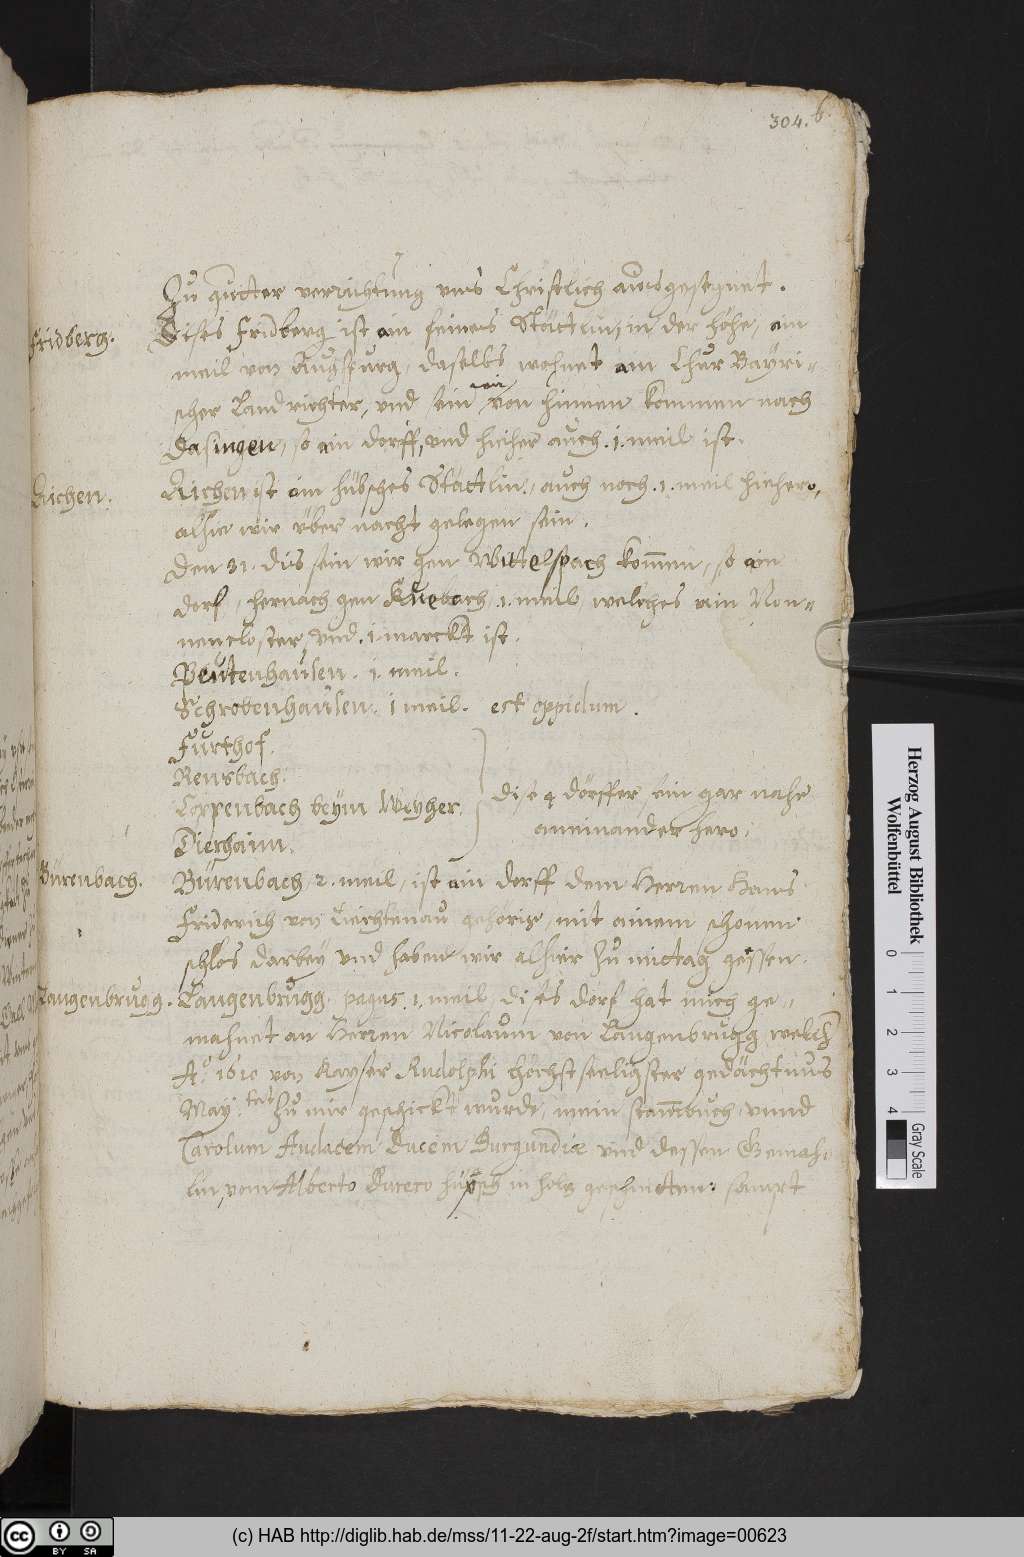 304. b
Zu gutter verrichtung uns Christlich ausgesegnet.
Fridberg.
Dises Fridberg ist ain feines Stättlin, in der höhe, ain
meil von Augspurg, daselbs wohnet ain Chur Bayri-
scher Landrichter, und sein wir von hinnen kommen nach
Dasingen, so ain dorff, und hieher auch .1. meil ist.
Aichen.
Aichen ist ain hübsches Stättlin, auch noch .1. meil hiehero,
alhie wir über nacht gelegen sein.
Den 31. dis sein wir gen Wittelspach kommen, so ain
dorf, hernach gen Kuebach .1. meil, welches ain Non-
nencloster, und .1. marckt ist.
Peutenhausen. 1. meil.
Schrobenhausen. 1 meil. est oppidum.
Furthof.
Rensbach.
Coppenbach beym Weyher.
Dierhaim.
dise 4 dörffer sein gar nahe
aneinander hero.
Bürenbach.
Bürenbach, 2. meil, ist ain dorff dem Herren Hans
Friderich von Liechtenau gehörig, mit ainem schonen
schlos darbey und haben wir alhier zu mittag gessen.
Langenbrugg.
Langenbrugg. pagus. 1. meil, dises dorf hat mich ge-
mahnet an Herren Nicolaum von Langenbrugg, welch
Aº. 1610 von Kayser Rudolphi höchstseeligster gedächtnus
May: tet zu mir geschickt wurde, mein stambuch, unnd
Carolum Audacem Ducem Burgundiæ und dessen Gemah-
lin vom Alberto Durero hüpsch in holz geschnitten: sampt
Herzog August Bibliothek
Wolfenbüttel
0 1 2 3 4
Gray Scale
(c) HAB http://diglib.hab.de/mss/11-22-aug-2f/start.htm?image=00623
cc BY SA